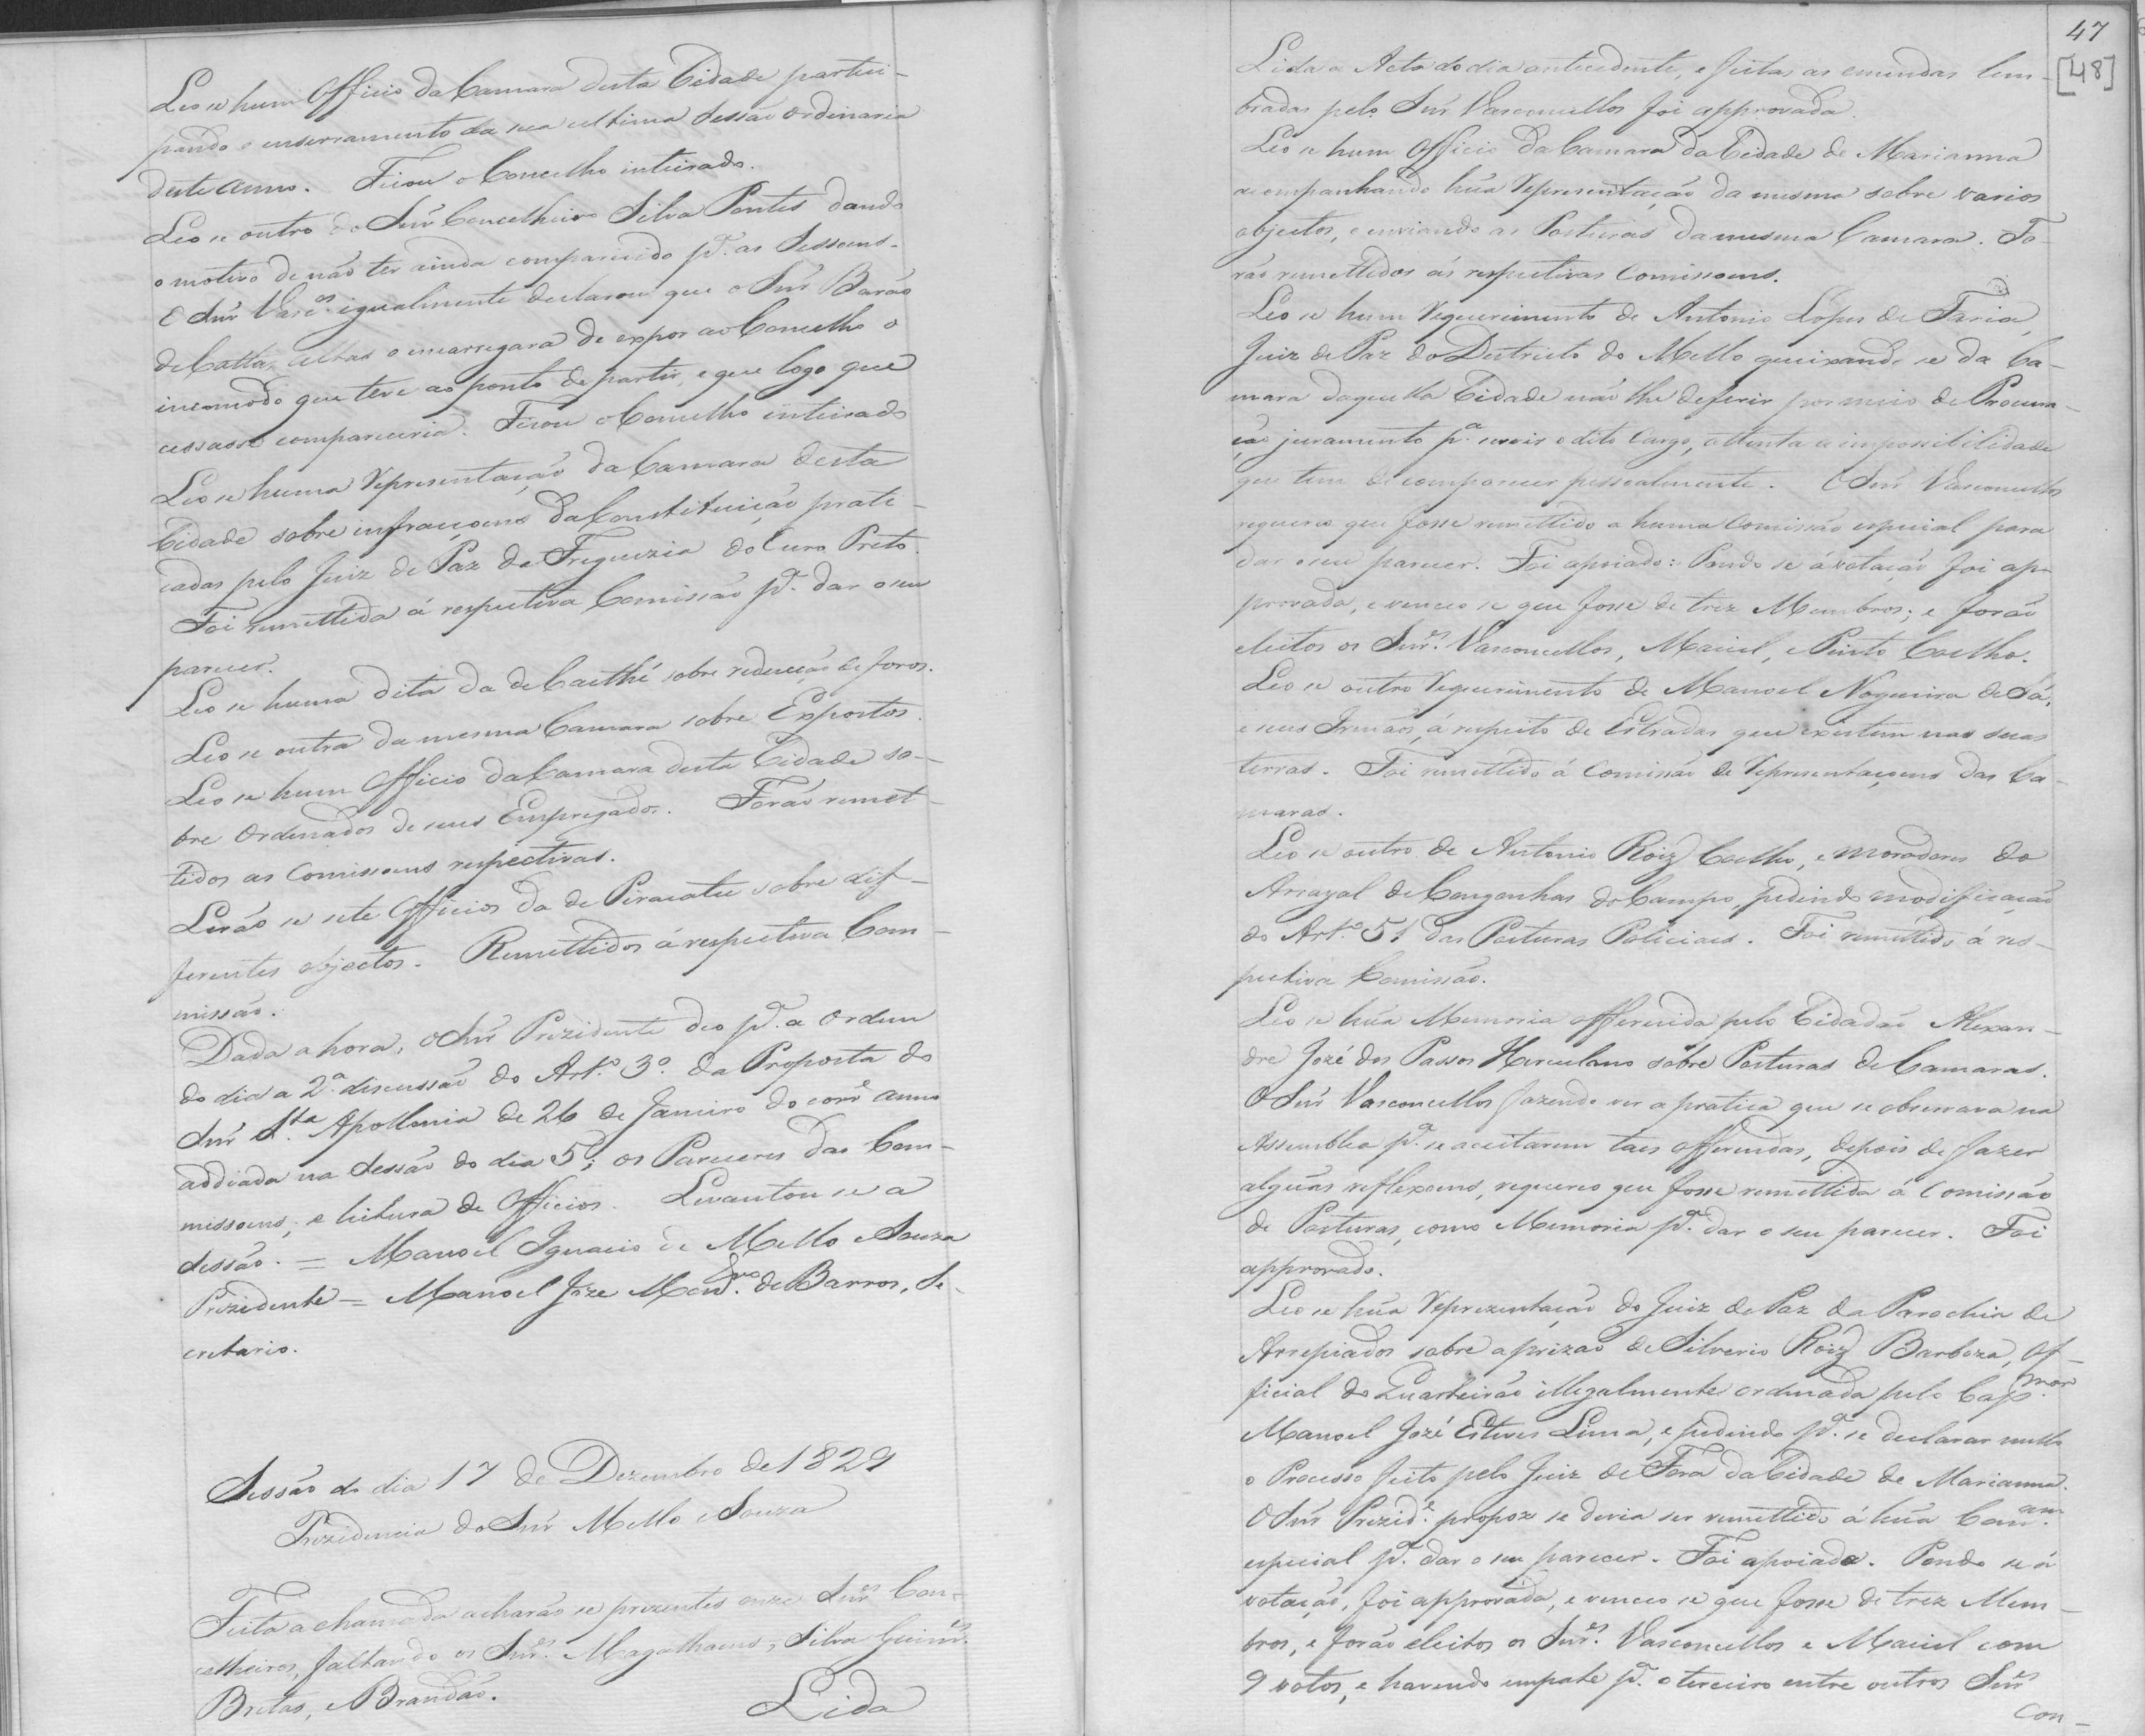 Leo se hum Officio da Camara desta Cidade partici-
pando o enserramento da sua ultima Sessão ordinaria
deste anno. Ficou o Concelho inteirado.
Leo se outro do Snr̃ Concelheiro Silva Pontes dando
o motivo de não ter ainda comparecido pª. as Sessoens.
O Snr̃ Vasc.os igualmente declarou que o Snr̃ Barão
de Cattas altas o encarregara de expor ao Concelho o
incomodo que teve ao ponto de partir, e que logo que
cessasse compareceria. Ficou o Concelho inteirado
Leo se huma Representação da Camara desta
Cidade sobre infraçoens da Constituição prati-
cadas pelo Juiz de Paz da Freguezia do Ouro Preto.
Foi remettida á respectiva Comissão pª. dar o seu
parecer.
Leo se huma dita da de Caethé sobre reducção de foros.
Leo se outra da mesma Camara sobre Expostos.
Leo se hum Officio da Camara desta Cidade so-
bre Ordenados de seus Empregados. Forão remet-
tidos as Comissoens respectivas.
Lerão se sete Officios da de Piracatu sobre dif-
ferentes objectos. Remettidos á respectiva Com-
missão.
Dada a hora, o Snr̃ Prezidente deo pª. a ordem
do dia a 2ª. discussão do Art.º 3º. da Proposta do
Snr̃ S.ta Apollonia de 26 de Janeiro do corr.e anno
addiada na Sessão do dia 5; os Pareceres das Com-
missoens, e leitura de Officios. Levantou se a
Sessão. = Manoel Ignacio de Mello e Souza
Prezidente = Manoel Joze Mon.ro de Barros, Se-
cretario.
Sessão do dia 17 de Dezembro de 1829
Prezidencia do Snr̃ Mello e Souza
Feita a chamada acharão se prezentes onze Snr.es Con-
celheiros, faltando os Snr.es Magalhaens, Silva Guim.es
Bretas, e Brandão.
Lida
47
[48]
Lida a Acta do dia antecedente, e feitas as emendas lem-
bradas pelo Snr̃ Vasconcellos foi approvada.
Leo se hum Officio da Camara da Cidade de Marianna
acompanhando hũa Representação da mesma sobre varios
objectos, e enviando as Posturas da mesma Camara. Fo-
rão remettidos ás respectivas Comissoens.
Leo se hum Requerimento de Antonio Lopes de Faria,
Juiz de Paz do Destricto do Mello queixando se da Ca-
mara daquella Cidade não lhe deferir por meio de Procura-
ção juramento pª. servir o dito Cargo, attenta a impossibilidade
que tem de comparecer pessoalmente. O Snr̃ Vasconcellos
requereo que fosse remettido a huma Comissão especial para
dar o seu parecer. Foi apoiado: Pondo se á votação foi ap-
provada, e venceo se que fosse de trez Membros; e forão
eleitos os Snr.es Vasconcellos, Maciel, e Pinto Coelho.
Leo se outro Requerimento de Manoel Nogueira de Sá,
e seus Irmãos, á respeito de Estradas que existem nas suas
terras. Foi remettido á Comissão de Representaçoens das Ca-
maras.
Leo se outro de Antonio Roiz Coelho, e moradores do
Arrayal de Congonhas do Campo, pedindo modificação
do Art.º 51 das Posturas Policiaes. Foi remettido á res-
pectiva Comissão.
Leo se hũa Memoria offerecida pelo Cidadão Alexan-
dre José dos Passos Herculano sobre Posturas de Camaras.
O Snr̃ Vasconcellos fazendo ver a pratica que se observava na
Assemblea pª. se aceitarem taes offerendas, depois de fazer
algũas reflexoens, requereo que fosse remettida á Comissão
de Posturas, como Memoria pª. dar o seu parecer. Foi
approvado.
Leo se hũa Reprezentação do Juiz de Paz da Parochia de
Arrepiados sobre a prizão de Silverio Roiz Barboza, Of-
ficial do Quarteirão illegalmente ordenada pelo Cap.mor
Manoel José Esteves Lima, e pedindo pª. se declarar nullo
o Processo feito pelo Juiz de Fora da Cidade de Marianna.
O Snr̃ Prezid.e propoz se devia ser remettido á hũa Com.am
especial pª. dar o seu parecer. Foi apoiada. Pondo se á
votação, foi approvada, e venceo se que fosse de trez Mem-
bros, e forão eleitos os Snr.es Vasconcellos e Maciel com
9 votos, e havendo empate pª. o terceiro entre outros Snr.es
Con-